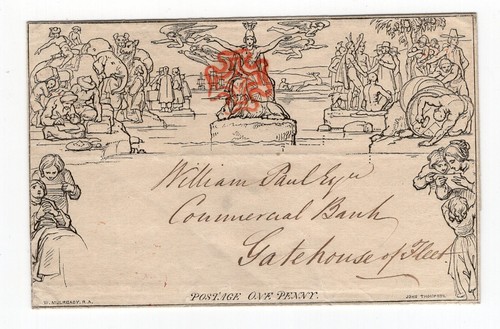 William Paul Esqr
Commercial Bank
Gatehouse of Fleet
POSTAGE ONE PENNY.
W. MULREADY, R.A.
JOHN THOMPSON.